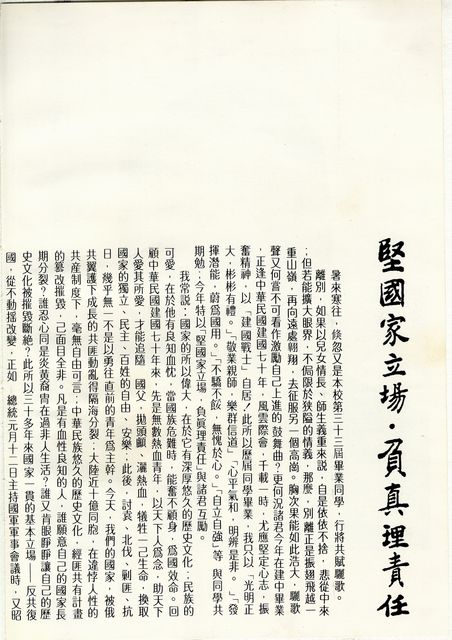 堅國家立場・負真理責任
暑來寒往，倏忽又是本校第三十三屆畢業同學，行將共賦驪歌。
離別，如果以兒女情長、師生義重來說，自是依依不捨，悲從中來
；但若能擴大眼界，不侷限於狹隘的情義，那麼，別離正是振翅飛越一
重山嶺，再向遠處翱翔，去征服另一個高崗。胸次果能如此浩大，驪歌
聲又何嘗不可看作激勵自己上進的鼓舞曲？更何況諸君今年在建中畢業
，正逢中華民國建國七十年，風雲際會，千載一時，尤應堅定心志，振
奮精神，以「建國戰士」自居！此所以歷屆同學畢業，我只以「光明正
大，彬彬有禮。」「敬業親師　樂群信道」「心平氣和　明辨是非。」「發
揮潛能，蔚為國用。」「不驕不餒，無愧於心。」「自立自強」等　與同學共
期勉；今年特以「堅國家立場　負真理責任」與諸君互勵。
我常說：國家的所以偉大，在於它有深厚悠久的歷史文化；民族的
可愛，在於他有良知血忱，當國族危難時，能奮不顧身，為國效命。回
顧中華民國建國七十年來，先是無數熱血青年，以天下人為念，助天下
人愛其所愛，才能追隨　國父，拋頭顱，灑熱血，犧牲一己生命，換取
國家的獨立、民主，百姓的自由、安樂。此後，討袁、北伐、剿匪、抗
日，幾乎無一不是以勇往直前的青年為主幹。今天，我們的國家，被俄
共翼護下成長的共匪動亂得隔海分裂，大陸近十億同胞，在違悖人性的
共產制度下，毫無自由可言；中華民族悠久的歷史文化，經匪共有計畫
的篡改摧毀，已面目全非。凡是有血性良知的人，誰願意自己的國家長
期分裂？誰忍心同是炎黃裔冑在過非人生活？誰又肯眼睜睜讓自己的歷
史文化被摧毀斷絕？此所以三十多年來國家一貫的基本立場——反共復
國，從不動搖改變，正如　總統元月十二日主持國軍軍事會議時，又昭